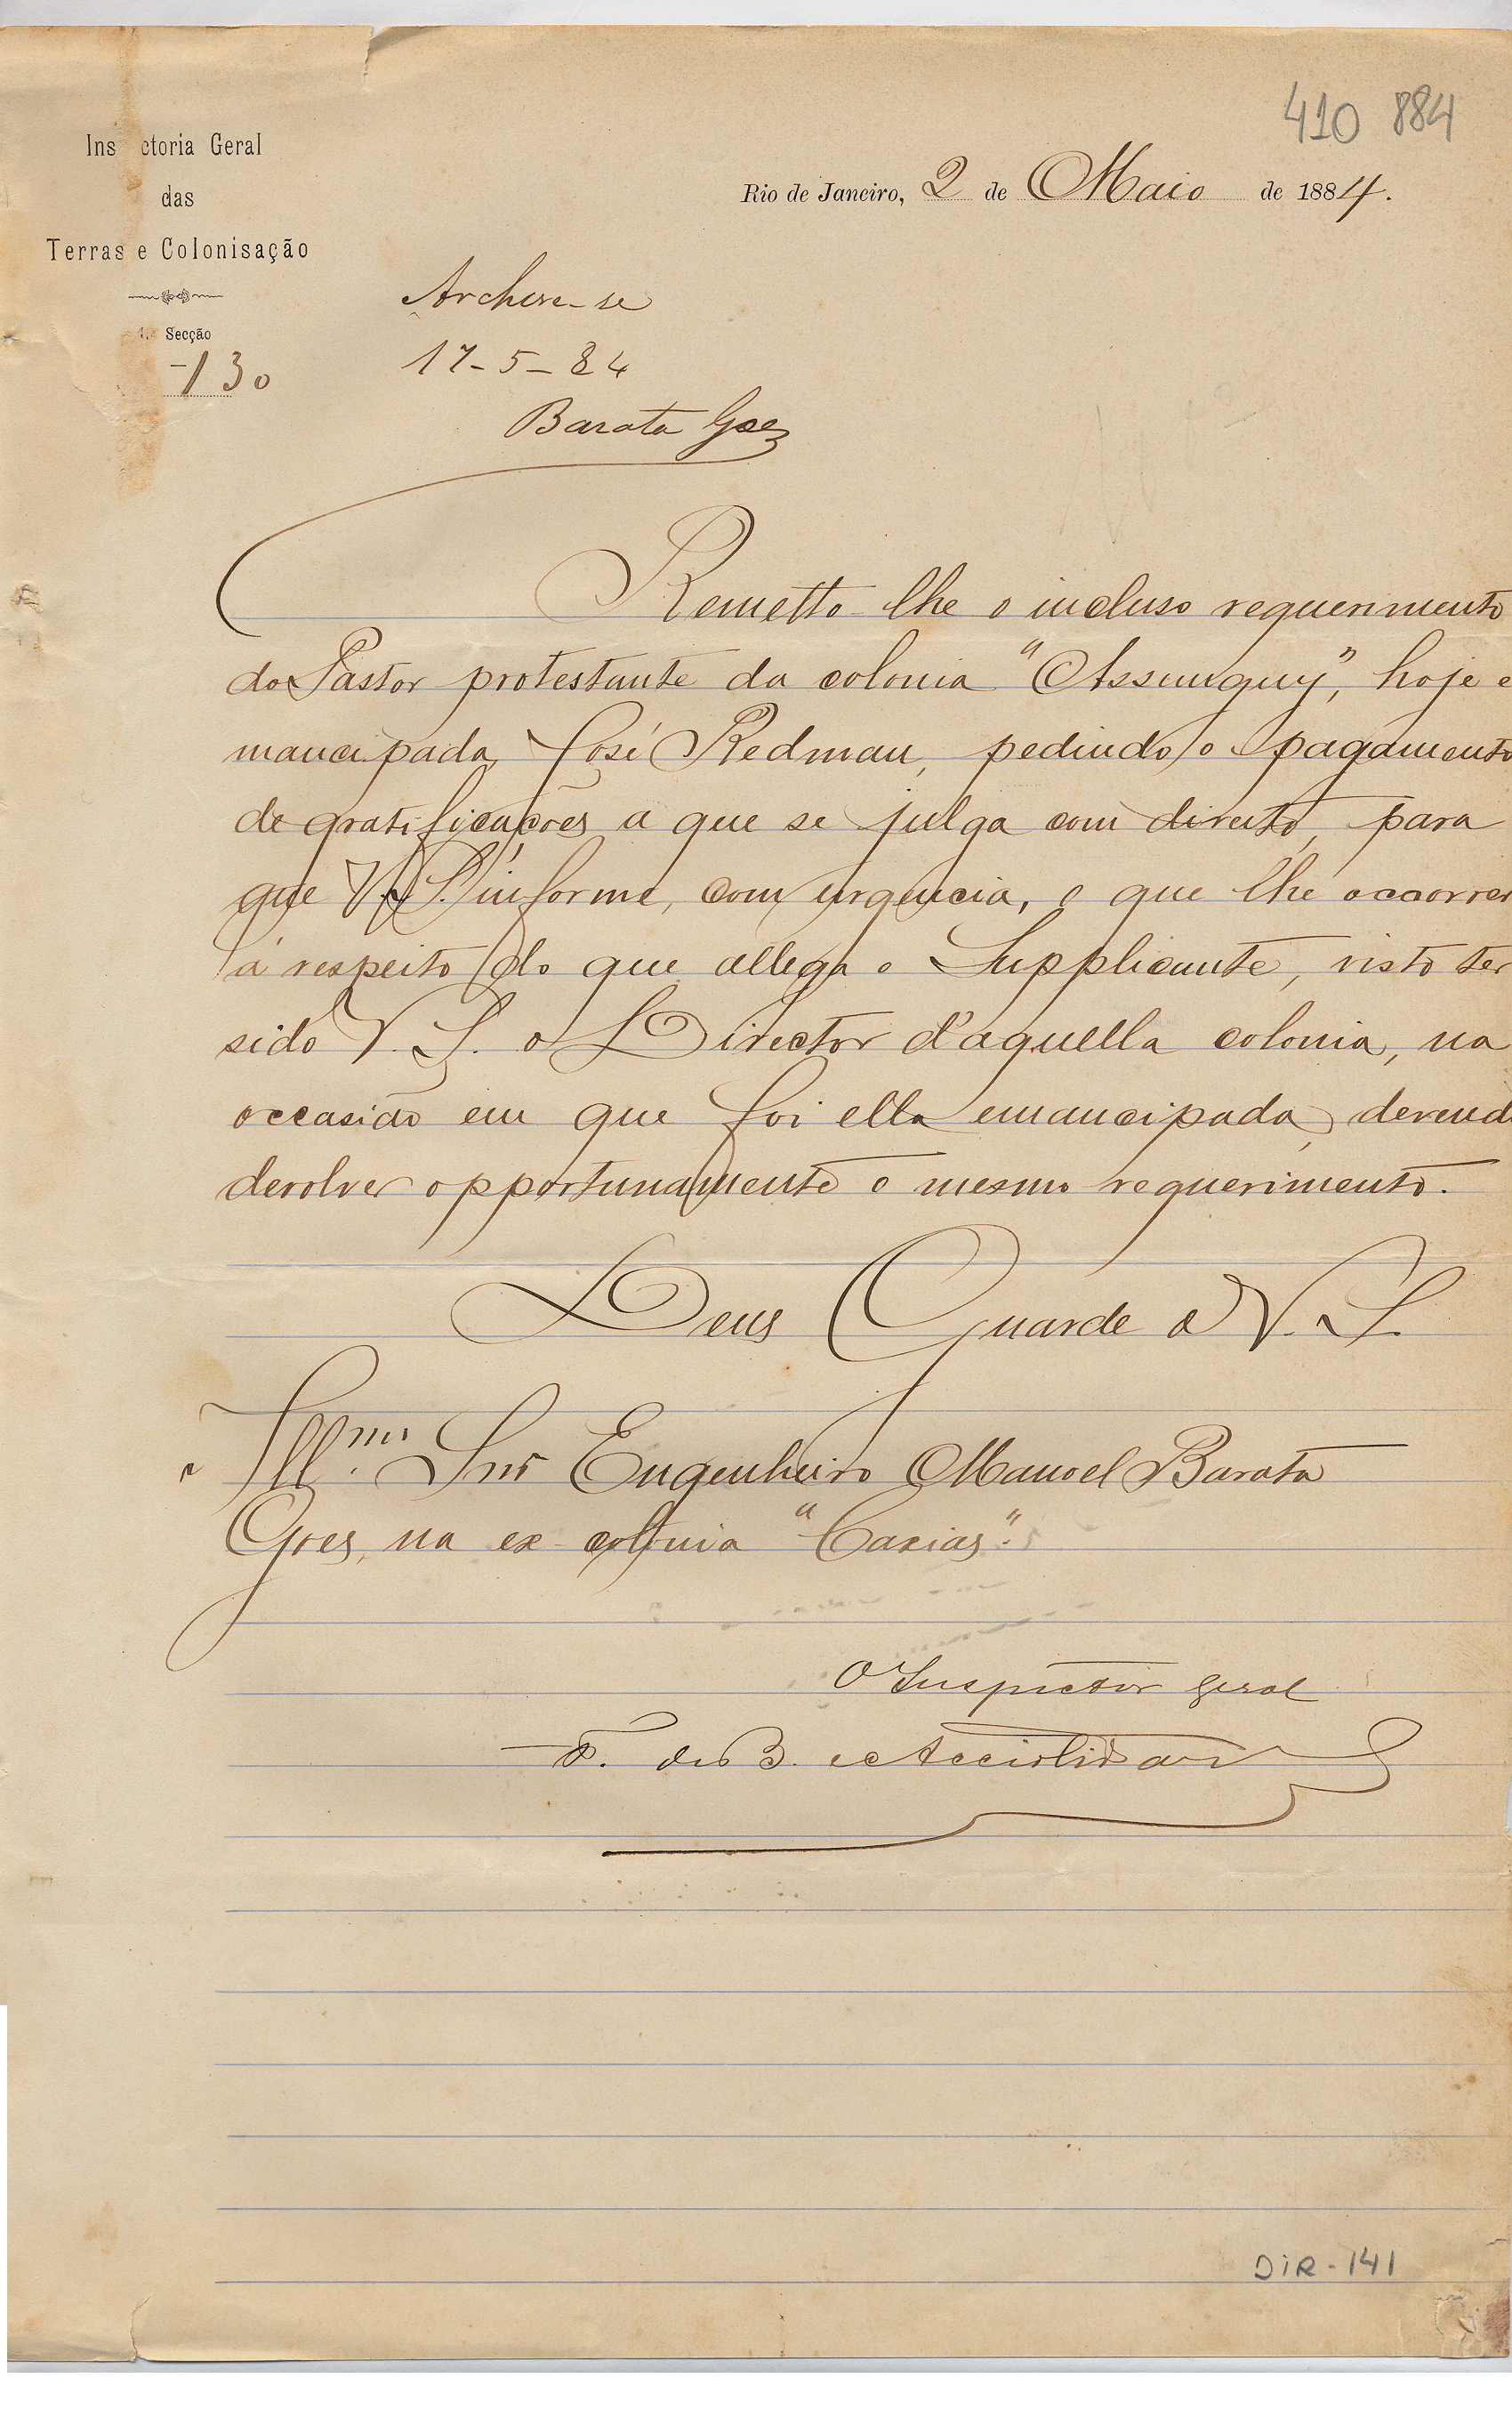 410 884
Ins ctoria Geral
das
Terras e Colonisação
Secção
130
Rio de Janeiro, 2 de Maio de 1884.
Archive-se
17-5-84
Barata Goes
Remetto-lhe o incluso requerimento
do Pastor protestante da colonia "Assunguy", hoje e
mancipada, José Redman, pedindo o pagamento
de gratificações a que se julga com direito, para
que V. S. informe, com urgencia, o que lhe occorrer
á respeito do que allega o Supplicante, visto ter
sido V. S. o Director d'aquella colonia, na
occasião em que foi ella emancipada, devend
devolver opportunamente o mesmo requerimento.
Deus Guarde a V. S.
Illmo. Snr Engenheiro Manoel Barata
Goes, na ex colonia "Caxias".
O Inspector geral
F. de B. e Accioli de
DIR-141